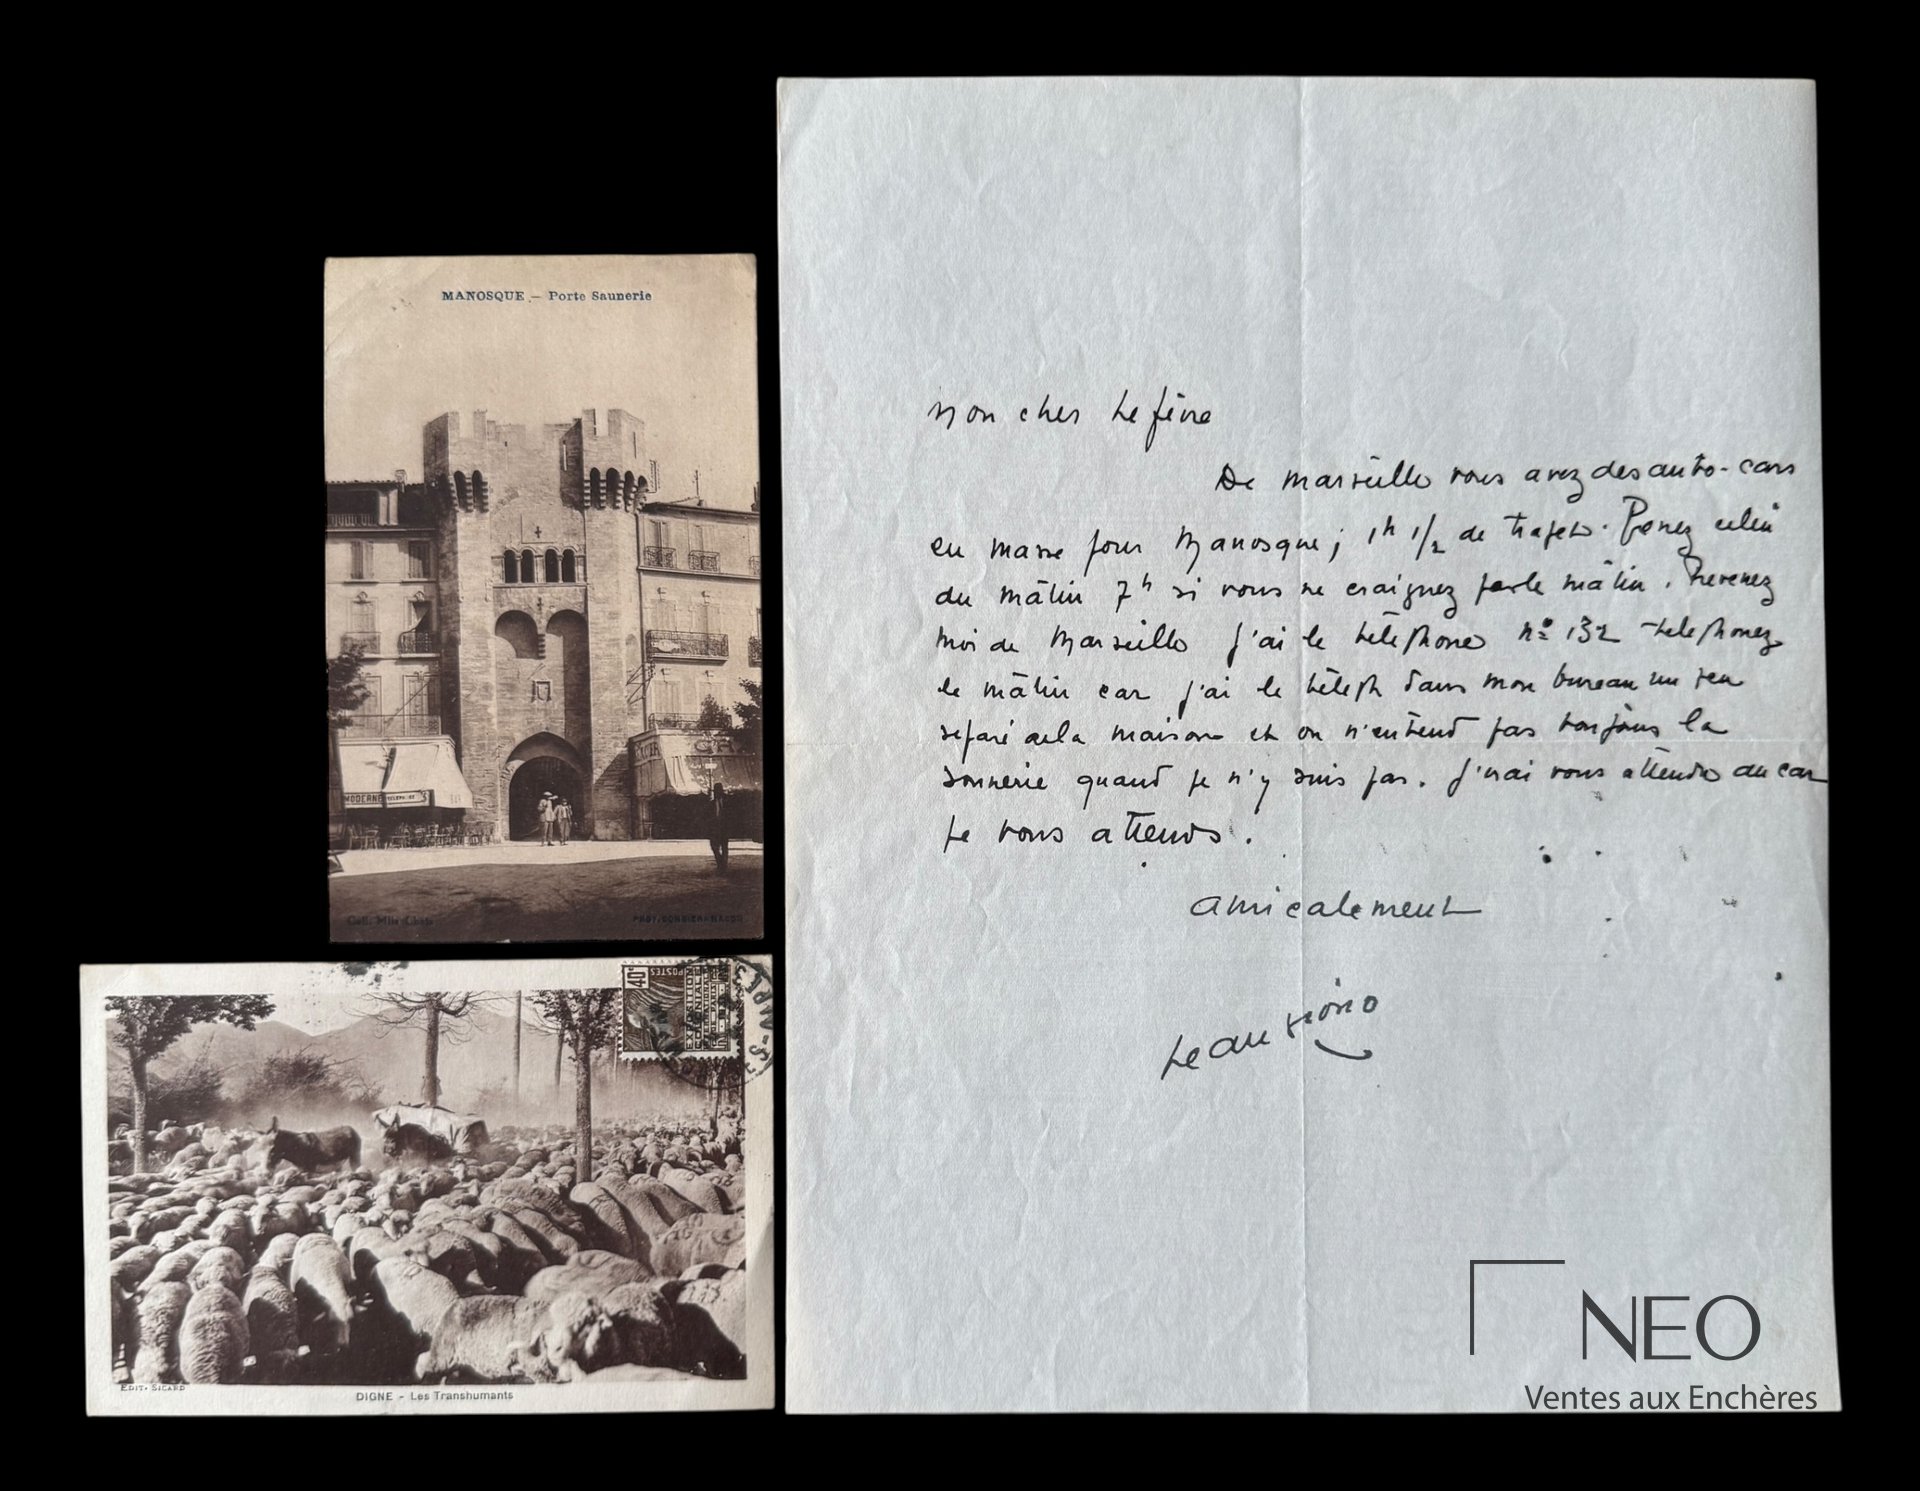 MANOSQUE – Porte Saunerie
MODERNE TELEPHONE
Coll. Mlle
PHOT. COMBIER MACON
40c
POSTES
EXPOSITION
COLONIALE
INTERNATIONALE
EDIT. SICARD
DIGNE - Les Transhumants
Mon cher Lefèvre
De Marseille vous avez des auto-cars
en masse pour Manosque ; 1h 1/2 de trajet. Prenez celui
du mâtin 7h si vous ne craignez pas le mâtin. Prevenez
moi de Marseille j'ai le téléphone n° 132 telephonez
le mâtin car j'ai le téleph dans mon bureau un peu
separé de la maison et on n'entend pas toujours la
sonnerie quand je n'y suis pas. J'irai vous attendre au car
je vous attends.
amicalement
Jean Giono
NEO
Ventes aux Enchères